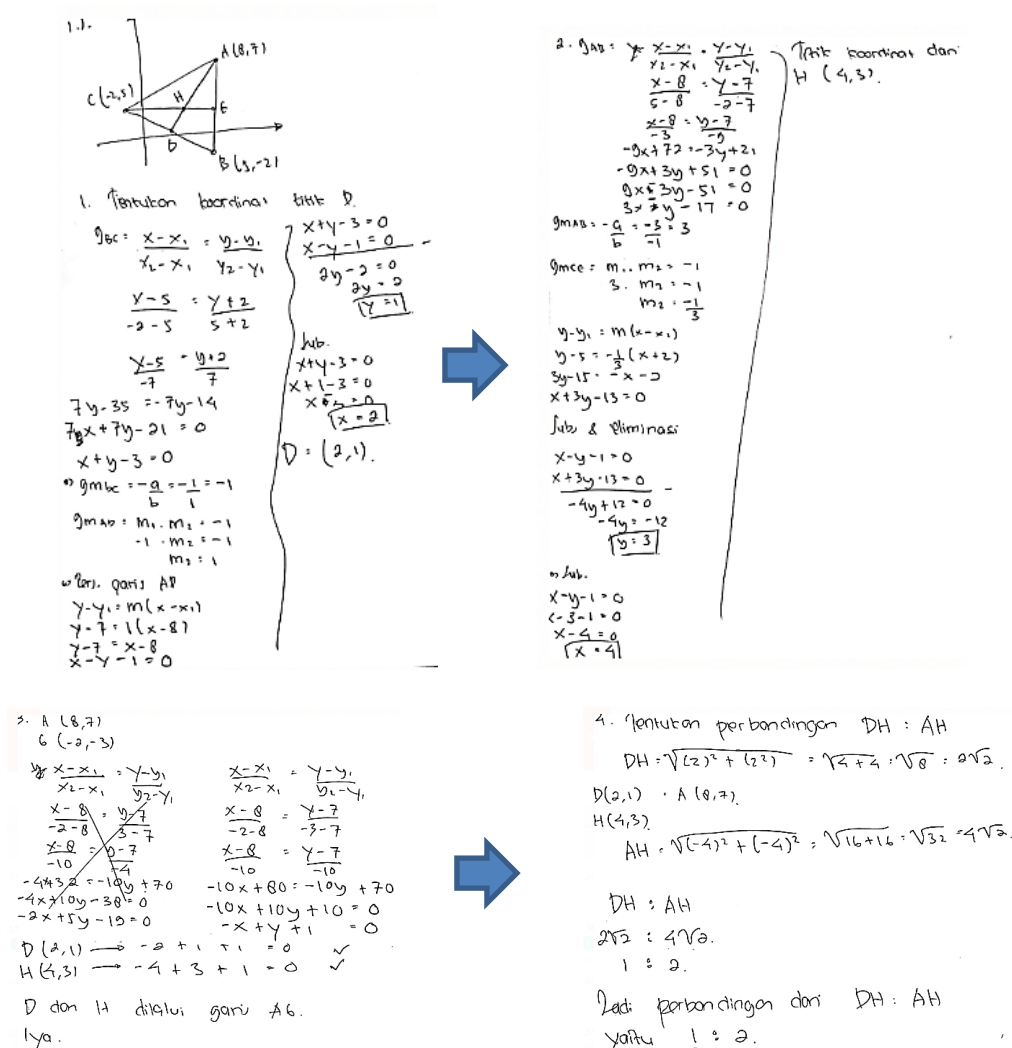 1.).
A (8,7)
C (-2,5)
H
E
D
B (5,-2)
1. Tentukan koordinat titik D.
gBC = x-x₁ / x₂-x₁ = y-y₁ / y₂-y₁
x-5 / -2-5 = y+2 / 5+2
x-5 / -7 = y+2 / 7
7y-35 = -7y-14
7x+7y-21 = 0
x+y-3=0
gmbc = -a/b = -1/1 = -1
gmAD = m₁.m₂ = -1
-1 . m₂ = -1
m₂ = 1
Pers. garis AD
y-y₁ = m(x-x₁)
y-7 = 1(x-8)
y-7 = x-8
x-y-1=0
x+y-3=0
x-y-1=0 -
2y-2=0
2y=2
y=1
Sub.
x+y-3=0
x+1-3=0
x-2=0
x=2
D = (2,1).
2. gAB = x-x₁ / x₂-x₁ = y-y₁ / y₂-y₁
x-8 / 5-8 = y-7 / -2-7
x-8 / -3 = y-7 / -9
-9x+72 = -3y+21
-9x+3y+51=0
9x-3y-51=0
3x-y-17=0
gmAB = -a/b = -3/-1 = 3
gmCE = m₁.m₂ = -1
3. m₂ = -1
m₂ = -1/3
y-y₁ = m(x-x₁)
y-5 = -1/3(x+2)
3y-15 = -x-2
x+3y-13=0
Sub & eliminasi
x-y-1=0
x+3y-13=0 -
-4y+12=0
-4y=-12
y=3
Sub.
x-y-1=0
x-3-1=0
x-4=0
x=4
Titik koordinat dari
H (4,3).
3. A (8,7)
G (-2,-3)
x-x₁ / x₂-x₁ = y-y₁ / y₂-y₁
x-8 / -2-8 = y-7 / 3-7
x-8 / -10 = y-7 / -4
-4x+32 = -10y+70
-4x+10y-38=0
-2x+5y-19=0
x-x₁ / x₂-x₁ = y-y₁ / y₂-y₁
x-8 / -2-8 = y-7 / -3-7
x-8 / -10 = y-7 / -10
-10x+80 = -10y+70
-10x+10y+10=0
-x+y+1=0
D (2,1) → -2+1+1=0 ✓
H (4,3) → -4+3+1=0 ✓
D dan H dilalui garis AG.
Iya.
4. Tentukan perbandingan DH : AH
DH = √(2)²+(2²) = √4+4 = √8 = 2√2.
D(2,1) . A (8,7).
H(4,3)
AH = √(-4)²+(-4)² = √16+16 = √32 = 4√2.
DH : AH
2√2 : 4√2.
1 : 2.
Jadi perbandingan dari DH : AH
yaitu 1 : 2.